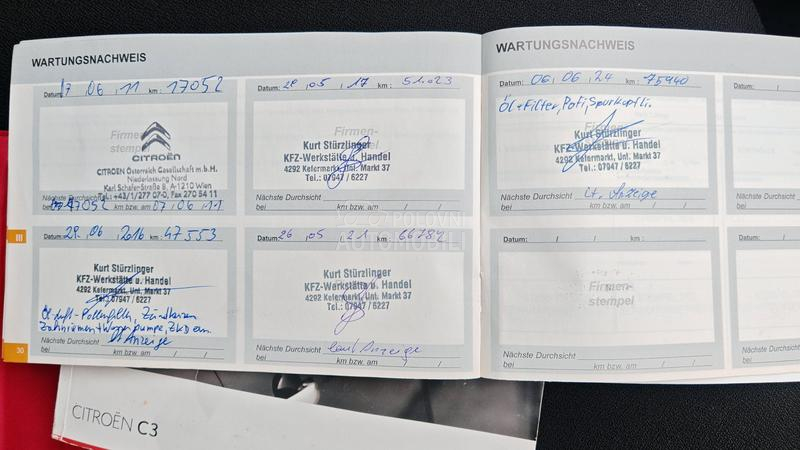 WARTUNGSNACHWEIS
Datum: 17 . 06 . 11 km : 17052
Firmen-
stempel
CITROËN
CITROEN Österreich Gesellschaft m.b.H.
Niederlassung Nord
Karl Schäfer-Straße 8, A-1210 Wien
Tel.: +43/1/277 07-0, Fax 270 54 11
Nächste Durchsicht
bei 47052 km bzw. am 07 / 06 / 11
Datum: 29 . 06 2016 km : 47553
Kurt Stürzlinger
KFZ-Werkstätte u. Handel
4292 Kefermarkt, Unt. Markt 37
Tel.: 07947 / 6227
Öl-Luft-Pollenfilter, Zündkerzen
Zahnriemen + Wasserpumpe,
Nächste Durchsicht lt Anzeige
bei km bzw. am / /
30
Datum: 29 . 05 . 17 km : 51.023
Firmen-
Kurt Stürzlinger
KFZ-Werkstätte u. Handel
4292 Kefermarkt, Unt. Markt 37
Tel.: 07947 / 6227
Nächste Durchsicht
bei km bzw. am / /
POLOVNI
AUTOMOBILI
Datum: 26 . 05 . 21 km : 66784
Kurt Stürzlinger
KFZ-Werkstätte u. Handel
4292 Kefermarkt, Unt. Markt 37
Tel.: 07947 / 6227
Nächste Durchsicht laut Anzeige
bei km bzw. am / /
III
WARTUNGSNACHWEIS
Datum: 06 . 06 . 24 km : 75940
Öl + Filter,
Kurt Stürzlinger
KFZ-Werkstätte u. Handel
4292 Kefermarkt, Unt. Markt 37
Tel.: 07947 / 6227
Nächste Durchsicht lt. Anzeige
bei km bzw. am / /
Datum: . . km :
Firmen-
stempel
Nächste Durchsicht
bei km bzw. am / /
Datum:
Nächste
bei
Datum:
Nächste
bei
CITROËN C3